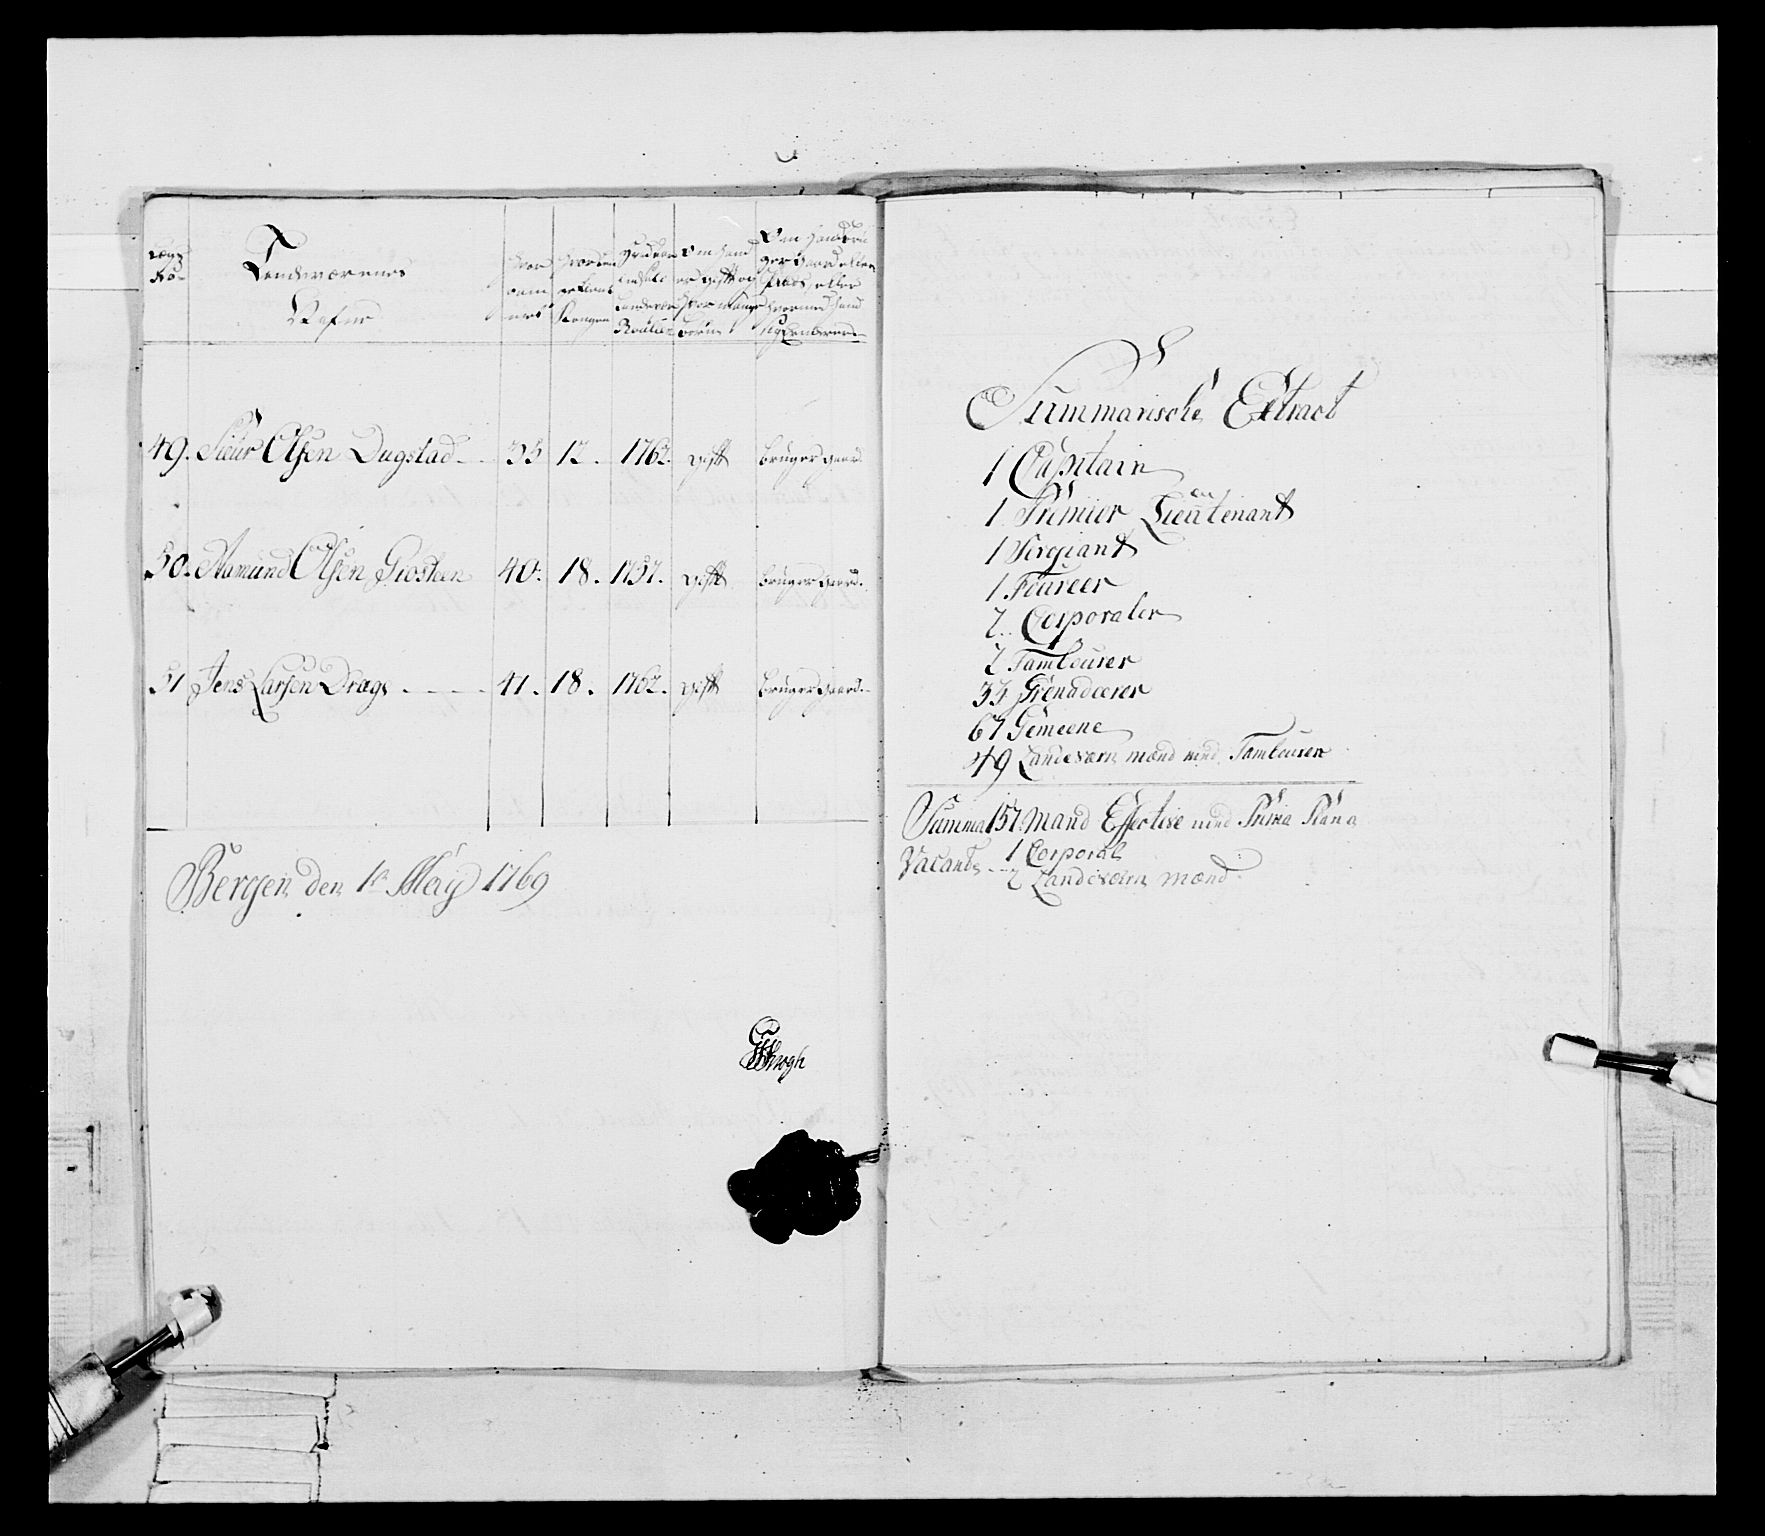 Lægs No
Landeværnes
Nafne
Hvor gam mel
Hvor længe tient Kongen
Om Hand er gift og Hvor mange Børn
49. Siur Olsen Dugstad 35 12. 1762. gift bruger gaard.
50. Aamund Olsen Giosteen 40. 18. 1757. gift bruger gaard.
51 Jens Larsen Drags 41. 18. 1762. gift bruger gaard.
Bergen den 1te May 1769
Summarische Extract
1 Capitain
1 Premier Lieutenant
1 Sergiant
1 Foureer
2. Corporaler
2 Tambourer
33 Grenadeerer
67 Gemeene
49 Landeværn mænd med Tambourer
Summa 157 Mand Effective med Prima Plana
Vacant 1 Corporal
2 Landeværn mænd.